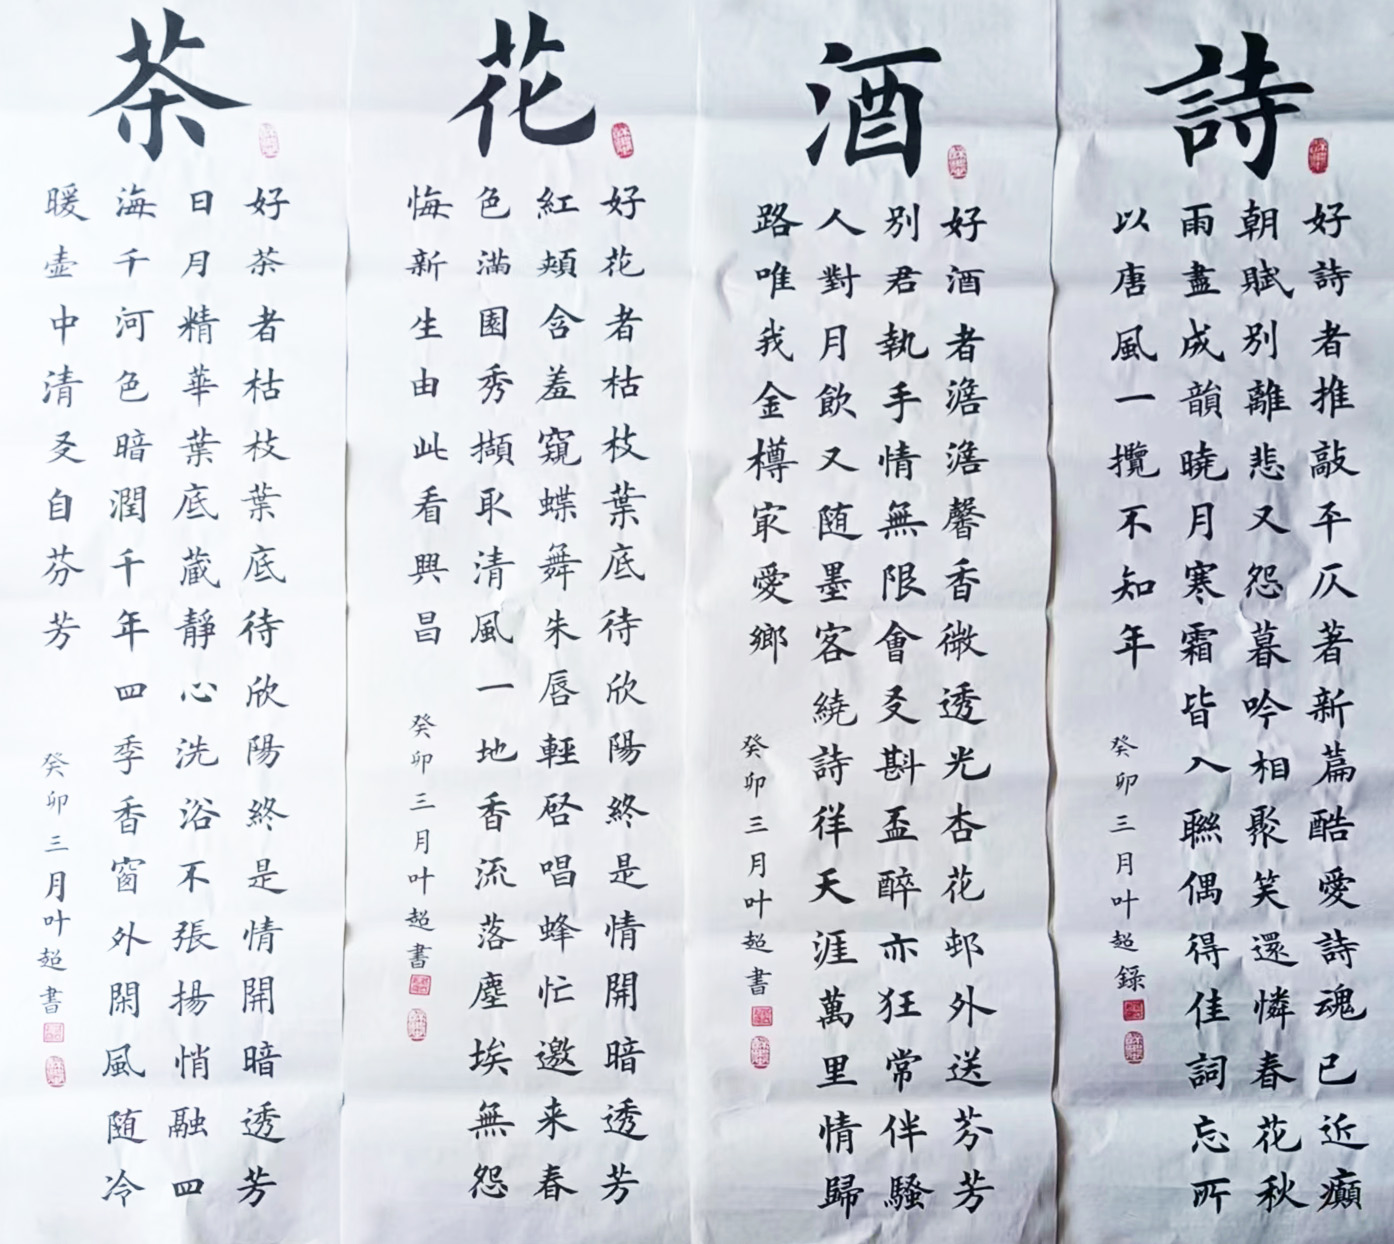 詩
好詩者推敲平仄著新篇酷愛詩魂已近癲
朝賦別離悲又怨暮吟相聚笑還憐春花秋
雨盡成韻曉月寒霜皆入聯偶得佳詞忘所
以唐風一攬不知年
癸卯三月叶超録
酒
好酒者澹澹馨香微透光杏花邨外送芬芳
別君執手情無限會友斟盃醉亦狂常伴騷
人對月飲又随墨客繞詩徉天涯萬里情歸
路唯我金樽冣愛鄉
癸卯三月叶超書
花
好花者枯枝葉底待欣陽終是情開暗透芳
紅頰含羞窺蝶舞朱唇輕啓唱蜂忙邀来春
色滿園秀擷取清風一地香流落塵埃無怨
悔新生由此看興昌
癸卯三月叶超書
茶
好茶者枯枝葉底待欣陽終是情開暗透芳
日月精華葉底蔵靜心洗浴不張揚悄融四
海千河色暗潤千年四季香窗外閑風随冷
暖壺中清友自芬芳
癸卯三月叶超書